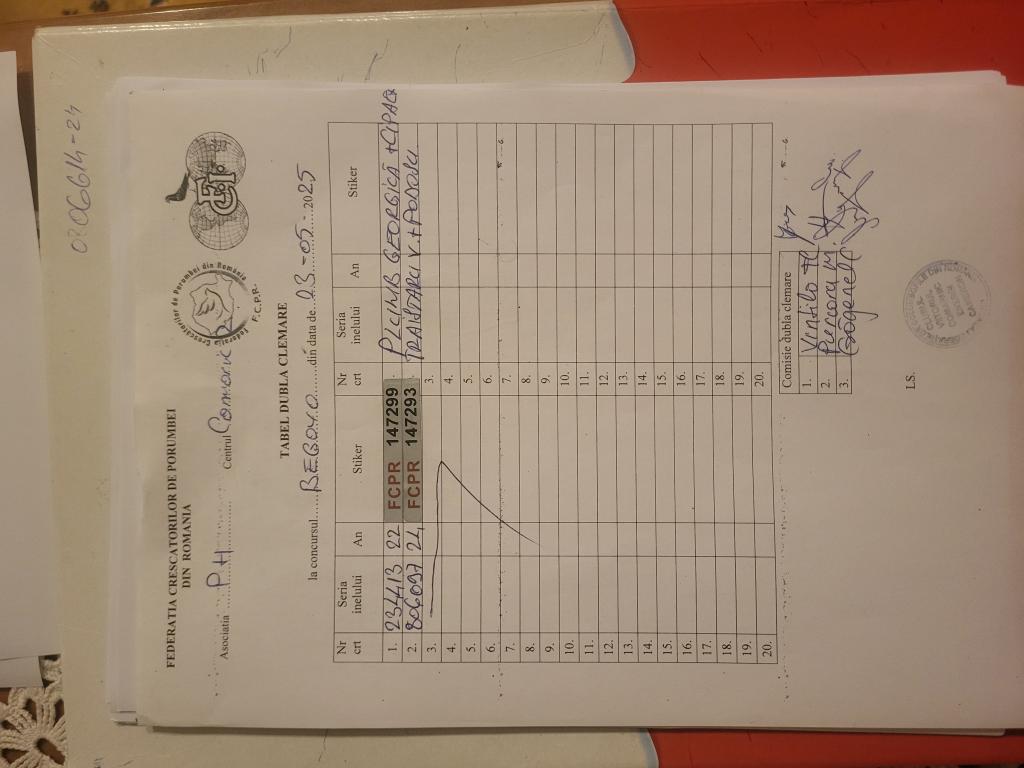 0206614-24
FEDERATIA CRESCATORILOR DE PORUMBEI
DIN ROMANIA
Asociatia P.H. Centrul Comarnic
Federatia Crescatorilor de Porumbei din România
F.C.P.R.
FCI
TABEL DUBLA CLEMARE
la concursul BEGOMO din data de 23-05-2025
Nr crt Seria inelului An Stiker Nr crt Seria inelului An Stiker
1. 234413 22 FCPR 147299 1. GEORGICA + CIPAQ
2. 806097 24 FCPR 147293 2. V. +
3. 3.
4. 4.
5. 5.
6. 6.
7. 7.
8. 8.
9. 9.
10. 10.
11. 11.
12. 12.
13. 13.
14. 14.
15. 15.
16. 16.
17. 17.
18. 18.
19. 19.
20. 20.
Comisie dubla clemare
1. Vintila
2. M.
3.
LS.